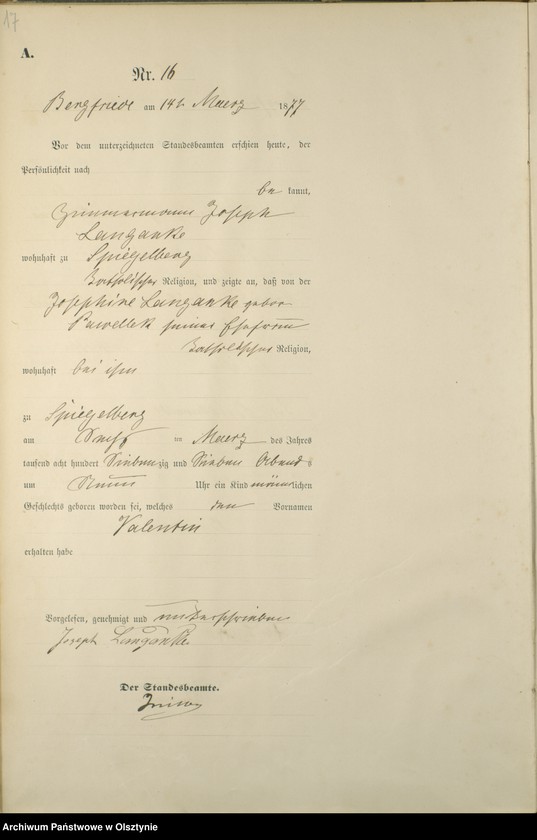 17
A.
Nr. 16
Bergfriede am 14t Maerz 1877
Vor dem unterzeichneten Standesbeamten erschien heute, der
Persönlichkeit nach
be kannt,
Zimmermann Joseph
Langanke
wohnhaft zu Spiegelberg
katholischer Religion, und zeigte an, daß von der
Josephine Langanke gebor
Pawellek seiner Ehefrau
katholischer Religion,
wohnhaft bei ihm
zu Spiegelberg
am Sechs ten Maerz des Jahres
tausend acht hundert Siebenzig und Sieben Abend s
um Neun Uhr ein Kind männlichen
Geschlechts geboren worden sei, welches den Vornamen
Valentin
erhalten habe
Vorgelesen, genehmigt und unterschrieben
Joseph Langanke
Der Standesbeamte.
Archiwum Państwowe w Olsztynie